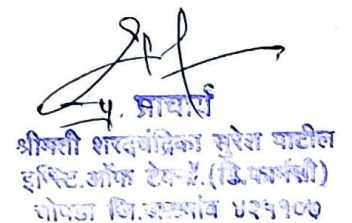 प्राचार्य
श्रीमती शरदचंद्रिका सुरेश पाटील
इन्स्टि.ऑफ टेक्नॉ.(डि.फार्मसी)
चोपडा जि.जळगांव ४२५१०७